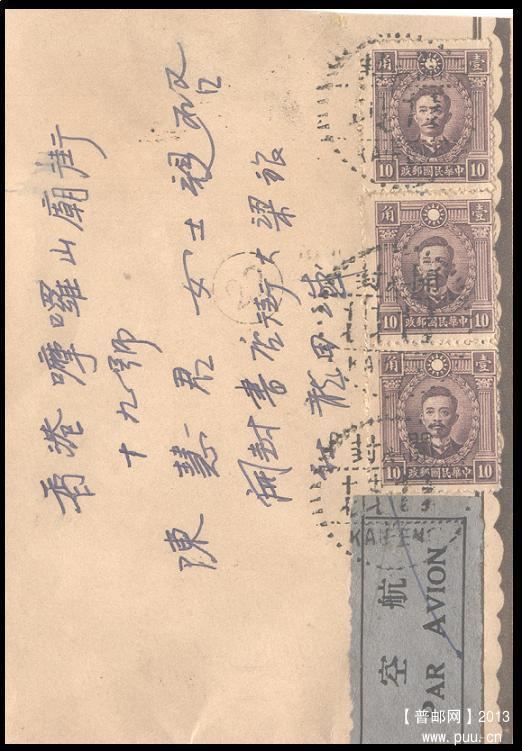 香港嚤囉山廟街
十九號
陳慧君女士
開封書店街大梁旅
壹 角
10 中華民國郵政 10
壹 角
10 中華民國郵政 10
壹 角
10 中華民國郵政 10
KAIFEN
航空
PAR AVION
【普邮网】2013
www.puu.cn